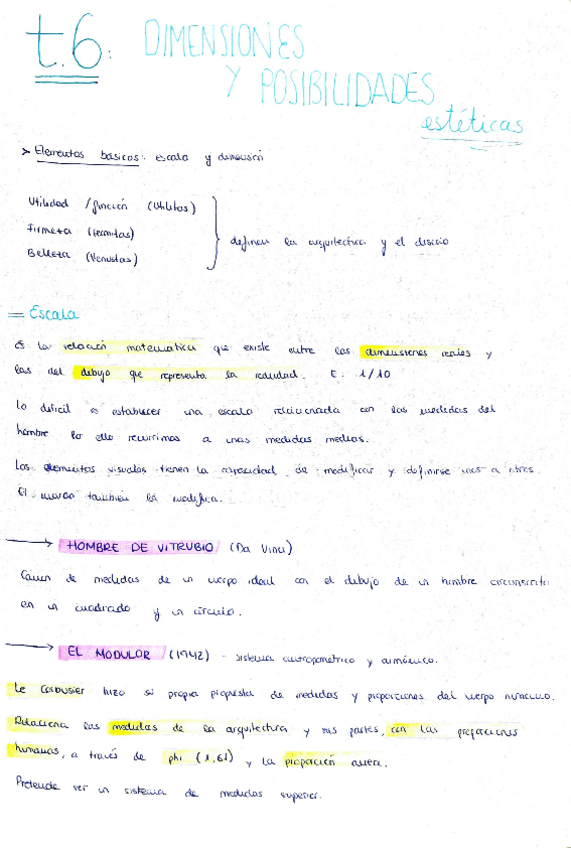 t.6: DIMENSIONES
Y POSIBILIDADES
estéticas
> Elementos básicos: escala y dimensión
Utilidad / función (Utilitas)
Firmeza (Firmitas)
Belleza (Venustas)
definen la arquitectura y el diseño
= Escala
Es la relación matemática que existe entre las dimensiones reales y
las del dibujo que representa la realidad. E. 1/10
Lo difícil es establecer una escala relacionada con las medidas del
hombre por ello recurrimos a unas medidas medias.
Los elementos visuales tienen la capacidad de modificar y definirse unos a otros.
El marco también los modifica.
→ HOMBRE DE VITRUBIO (Da Vinci)
Canon de medidas de un cuerpo ideal con el dibujo de un hombre circunscrito
en un cuadrado y un círculo.
→ EL MODULOR (1942) - sistema antropométrico y armónico.
Le Corbusier hizo su propia propuesta de medidas y proporciones del cuerpo humano.
Relaciona las medidas de la arquitectura y sus partes, con las proporciones
humanas, a través de phi (1,61) y la proporción aurea.
Pretende ser un sistema de medidas superior.